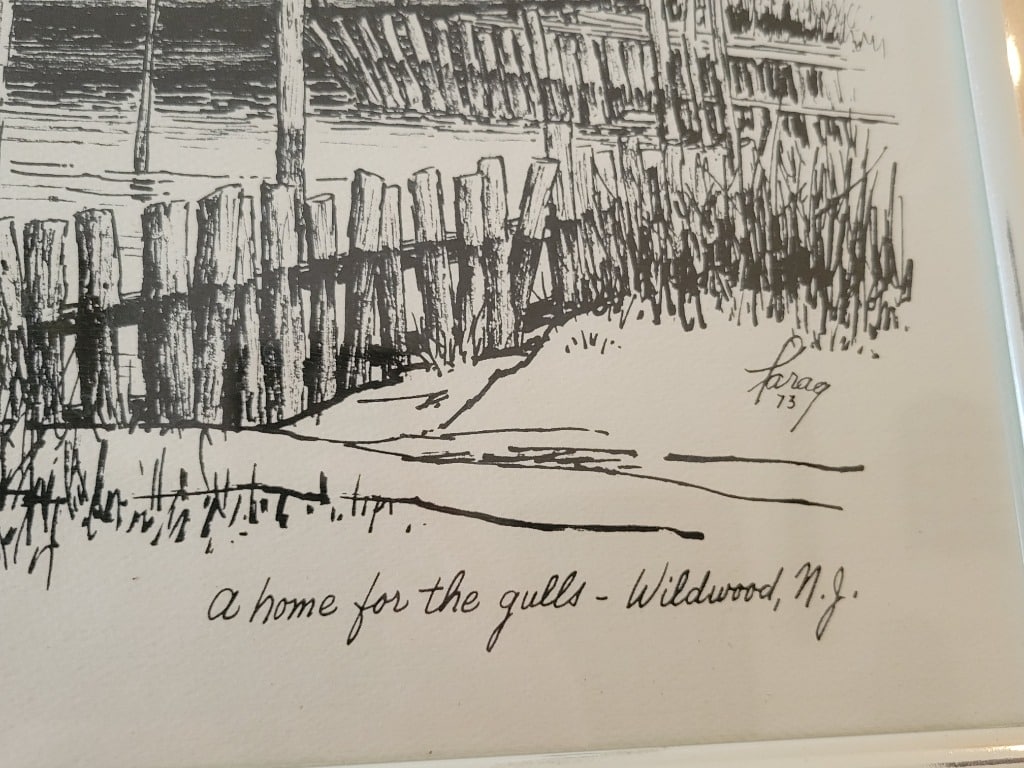 Farag
73
a home for the gulls - Wildwood, N.J.